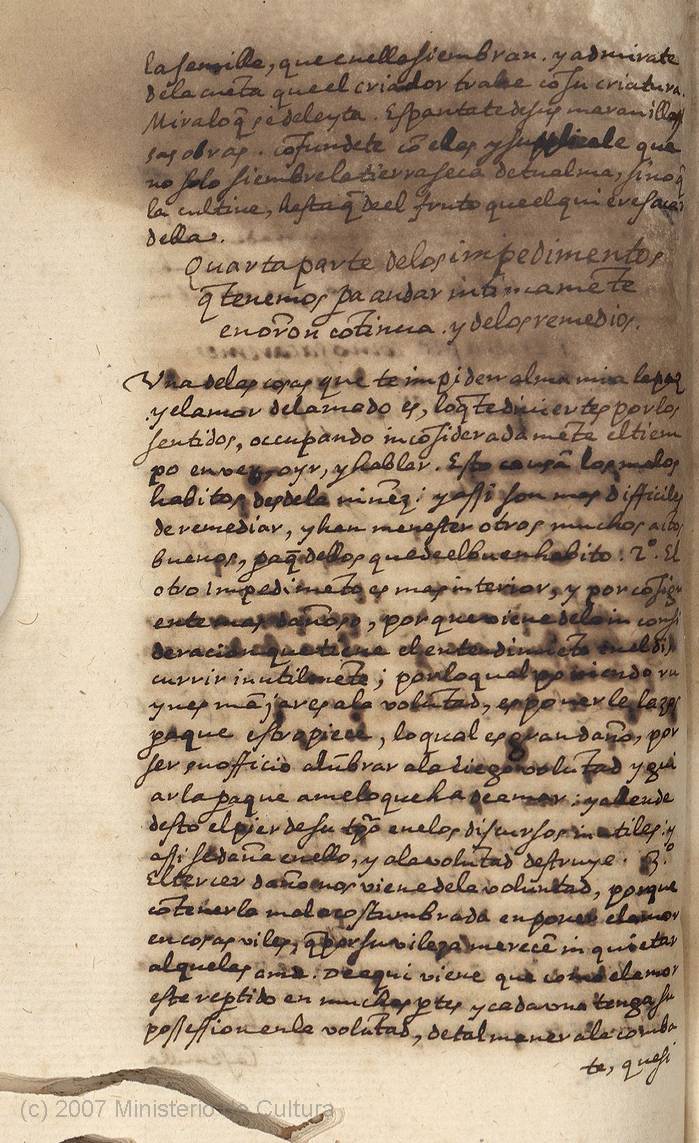 la semilla, que en ella siembran. y admirate
de la cuēta que el criador trahe cō su criatura.
Mira lo q̄ se deleyta. Espantate de sus marauillo
sas obras. cōfundete cō ellas y supplicale que
no solo siembre la tierra seca de tu alma, sino q̄
la cultiue, hasta q̄ de el fruto que el quiere sacar
della.
Quarta parte de los impedimentos
q̄ tenemos pa andar intimamēte
en orōn cōtinua. y de los remedios.
Vna de las cosas que te impiden alma mia la paz
y el amor del amado es, lo q̄ te diuiertes por los
sentidos, occupando incōsideradamēte el tiem
po en ver, oyr, y hablar. Esto causā los malos
habitos desde la niñez: y assi son mas difficiles
de remediar, y han menester otros muchos actos
buenos, paq̄ dellos quede el buen habito. 2º. El
otro impedimēto es mas interior, y por cōsigui
ente mas dañoso, porque viene de la in consi
deracion que tiene el entendimiēto en el dis
currir inutilmēte; por lo qual poniendo ru
ynes mājares a la volūtad, es ponerle lazos
paque estropiece, lo qual es gran daño, por
ser su officio alūbrar a la ciega volūtad y gui
arla paque ame lo que ha de amar: y allende
desto el pierde su tpō en los discursos inutiles: y
assi se daña en ello, y a la volūtad destruye. 3.º
El tercer daño nos viene de la voluntad, porque
cō tenerla mal acostumbrada en poner el amor
en cosas viles, q̄ por su vileza merecē inquietar
al que las ama. De aqui viene que como el amor
este reptido en muchas ptes y cada vna tenga su
possession en la voluntad, de tal manera la comba
te, que si
(c) 2007 Ministerio de Cultura